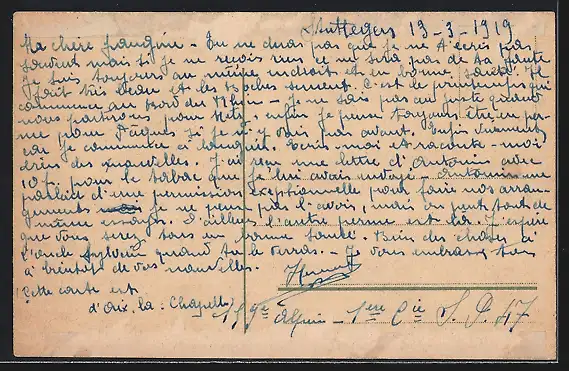 19-3-1919
Ma chère françoise - Tu ne diras pas que je ne t'écris pas
souvent mais si je ne reçois rien ce ne sera pas de ta faute
Je suis toujours au même endroit et en bonne santé. Il
fait très beau et les Boches sement. C'est le printemps qui
commence au bord du Rhin - Je ne sais pas au juste quand
nous partirons pour Metz, enfin je pense toujours être en
pour Pâques si je n'y vais pas avant. Enfin
car je commence à languir. Ecris moi et raconte-moi
des nouvelles. J'ai reçu une lettre d'Antonin avec
10f. pour le tabac que je lui avais envoyé - Antonin me
parle d'une permission exceptionnelle pour faire nos arran-
gements je ne peux pas l'avoir, mais on peut tout de
même. D'ailleurs l'autre perme est là. J'espère
que vous serez tous en bonne santé. Bien des choses à
l'oncle Sylvain quand tu le verras. - Je vous embrasse tous
à bientôt de vos nouvelles.
Cette carte est
d'Aix. la. Chapelle
Alpin - 1ère Cie S. P. 47